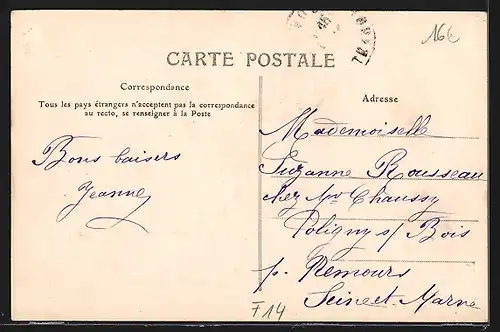 16k
CARTE POSTALE
Correspondance
Tous les pays étrangers n'acceptent pas la correspondance
au recto, se renseigner à la Poste
Adresse
Bons baisers
Jeanne
Mademoiselle
Suzanne Rousseau
chez Mr Chaussy
Poligny s/ Bois
p. Nemours
Seine et Marne
F14